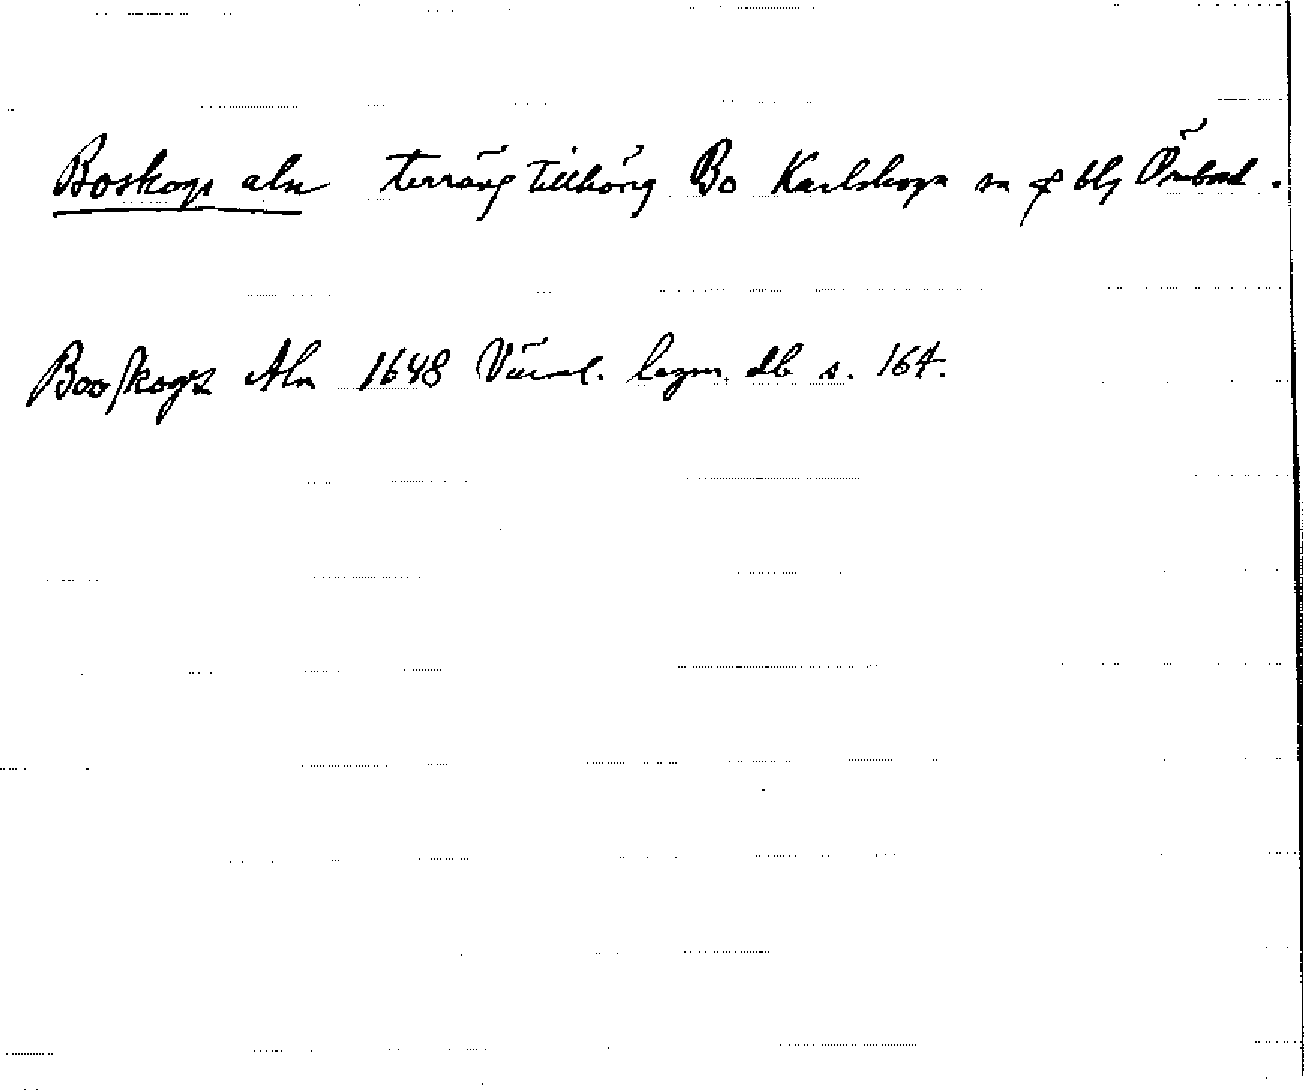 Boskogs aln terräng tillhörig Bo Karlskoga sn o blg Örebro l.
Booskogz Aln 1648 Värml. lagm. db s. 164.